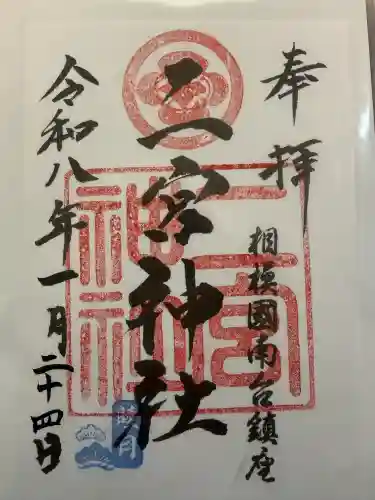 奉拝
相模國南台鎮座
二宮神社
令和八年一月二十四日
二宮神社
睦月